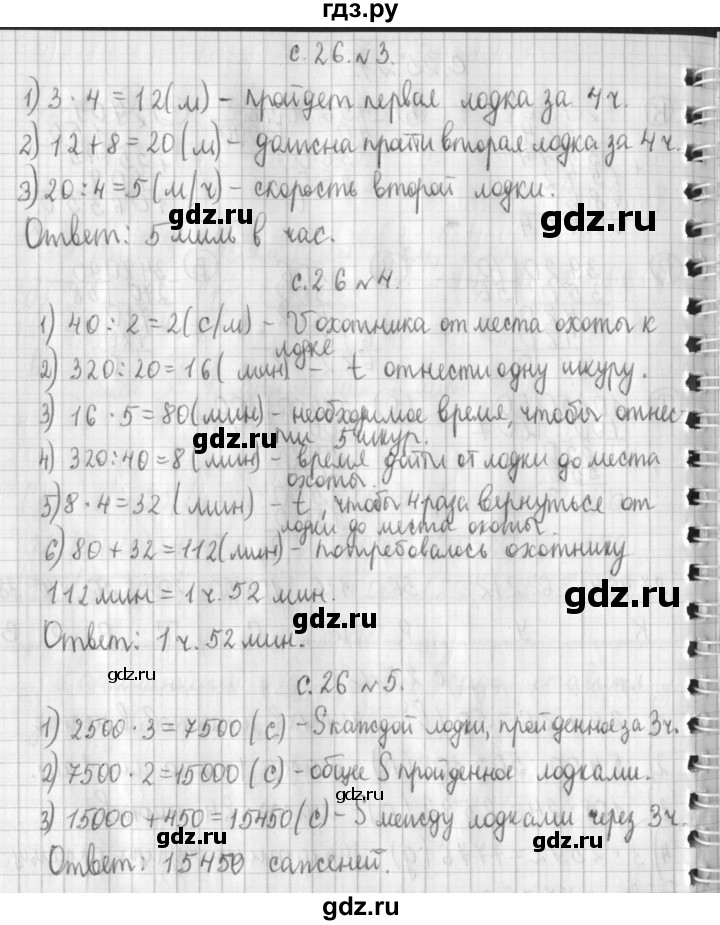 гдз.ру
с.26.№3.
1) 3 · 4 = 12 (м) - пройдет первая лодка за 4ч.
2) 12 + 8 = 20 (м) - должна пройти вторая лодка за 4ч.
3) 20 : 4 = 5 (м/ч) - скорость второй лодки.
gdz.ru
gdz.ru
Ответ: 5 миль в час.
с.26 №4.
1) 40 : 2 = 2 (с/м) - V охотника от места охоты к
лодке
2) 320 : 20 = 16 ( мин) - t отнести одну шкуру.
3) 16 · 5 = 80 (мин) - необходимое время, чтобы отнес-
ти 5 шкур.
gdz.ru
gdz.ru
4) 320 : 40 = 8 (мин) - время дойти от лодки до места
охоты.
5) 8 · 4 = 32 (мин) - t, чтобы 4 раза вернуться от
лодки до места охоты.
6) 80 + 32 = 112 (мин) - потребовалось охотнику
112 мин = 1 ч. 52 мин.
gdz.ru
gdz.ru
Ответ: 1 ч. 52 мин.
gdz.ru
с.26 №5.
1) 2500 · 3 = 7500 (с) - S каждой лодки, пройденное за 3ч.
2) 7500 · 2 = 15000 (с) - общее S пройденное лодками.
gdz.ru
3) 15000 + 450 = 15450 (с) - S между лодками через 3ч.
gdz.ru
gdz.ru
Ответ: 15450 саженей.
gdz.ru
gdz.ru